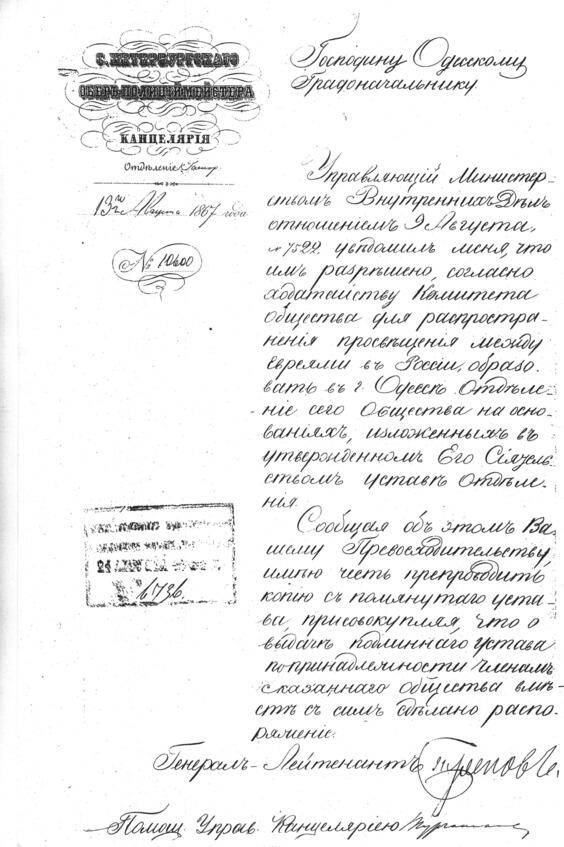 С. ПЕТЕРБУРГСКАГО
ОБЕРЪ-ПОЛИЦІЙМЕЙСТЕРА
КАНЦЕЛЯРІЯ
Отдѣленіе
13го Августа 1867 года
№ 10600
Господину Одесскому
Градоначальнику
Управляющій Министер-
ствомъ Внутреннихъ Дѣлъ
отношеніемъ 9 Августа,
№ 7522 увѣдомилъ меня, что
имъ разрѣшено, согласно
ходатайству Комитета
общества для распростра-
ненія просвѣщенія между
Евреями въ Россіи, образо-
вать въ г. Одессѣ Отдѣле-
ніе сего Общества на осно-
ваніяхъ, изложенныхъ въ
утвержденномъ Его Сіятель-
ствомъ уставѣ Отдѣле-
нія.
Сообщая объ этомъ Ва-
шему Превосходительству,
имѣю честь препроводить
копію съ помянутаго уста-
ва, присовокупляя, что о
выдачѣ подлиннаго устава
по принадлежности членамъ
сказаннаго общества вмѣ-
стѣ съ симъ сдѣлано распо-
ряженіе.
Генералъ-Лейтенантъ Треповъ
Помощ. Управ. Канцеляріею
6736.